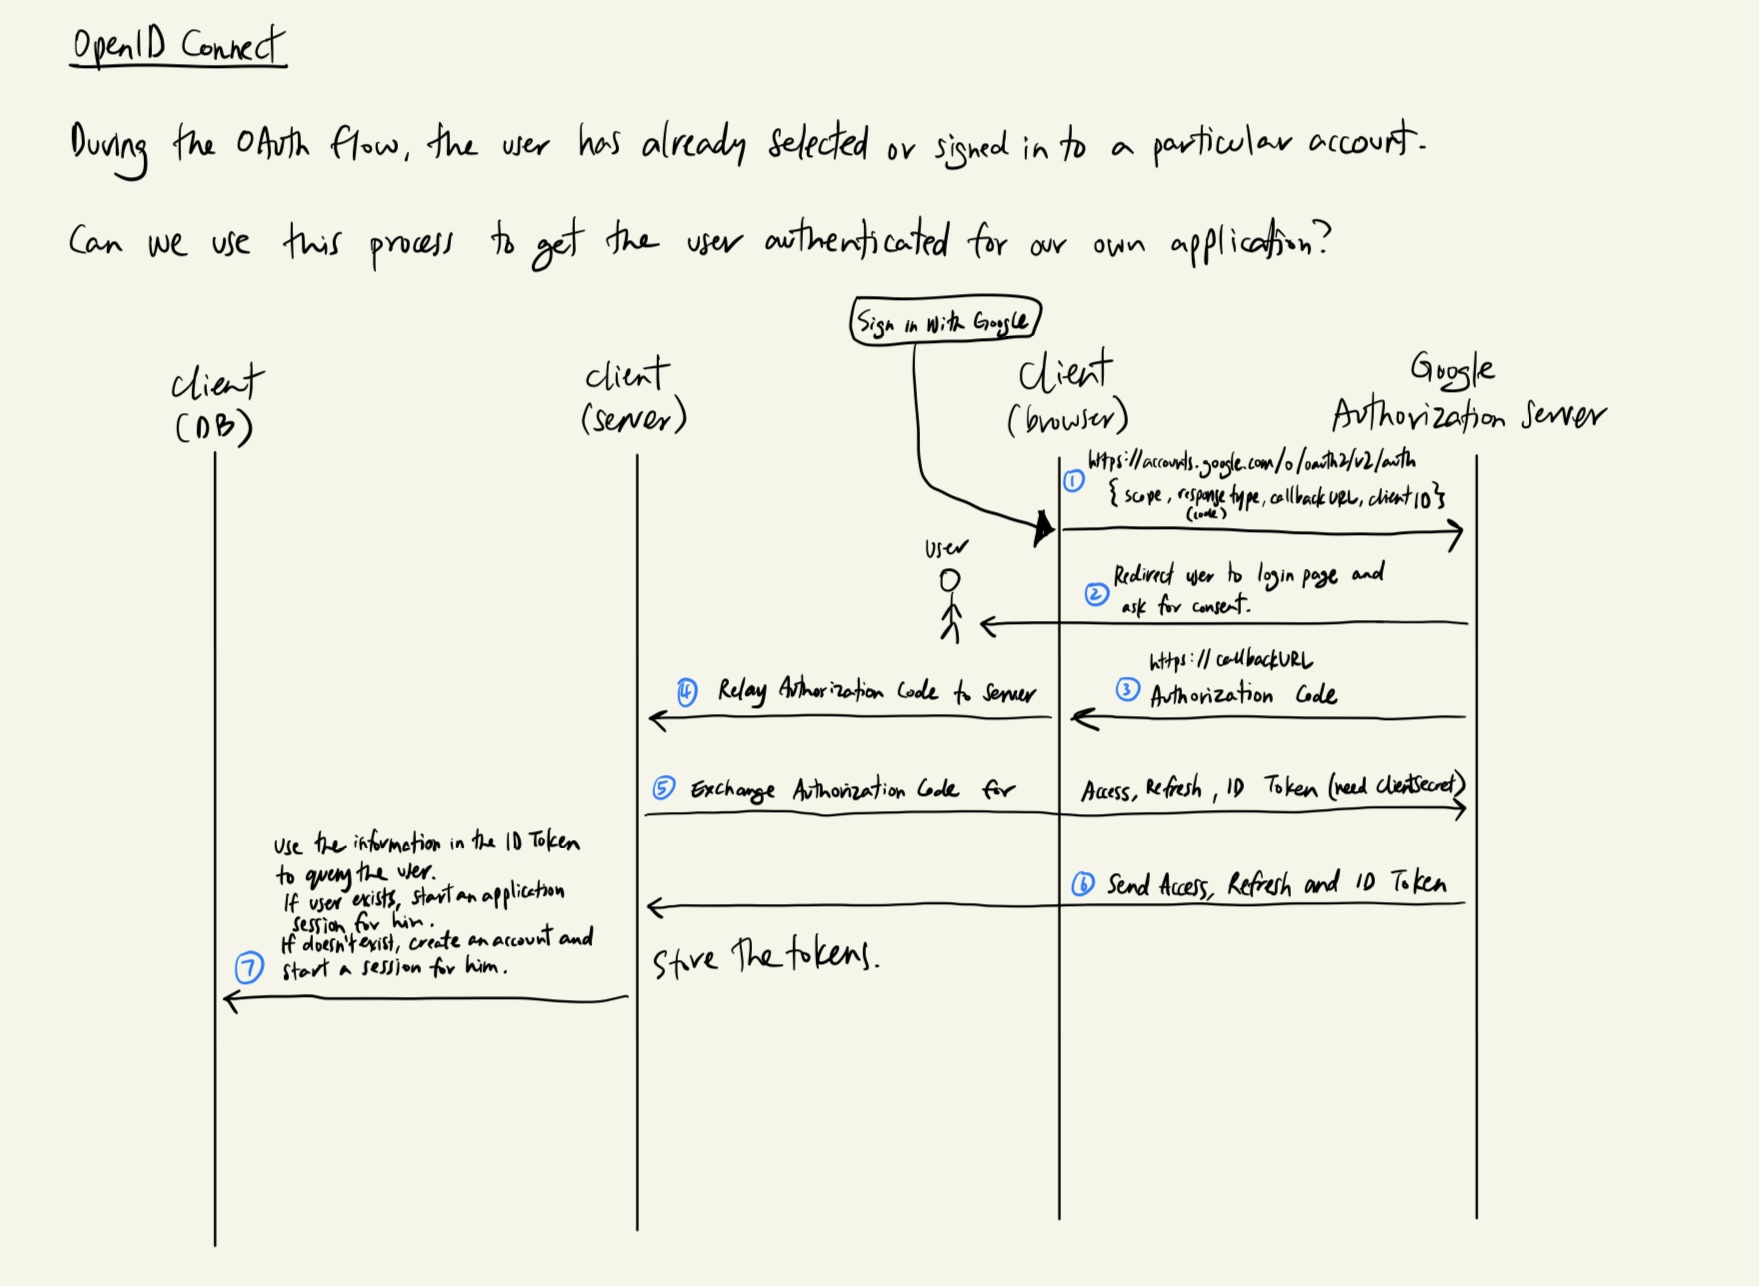 OpenID Connect
During the OAuth flow, the user has already selected or signed in to a particular account.
Can we use this process to get the user authenticated for our own application?
Sign in with Google
client
(DB)
client
(server)
Client
(browser)
Google
Authorization Server
① https://accounts.google.com/o/oauth2/v2/auth
{ scope, response type, callback URL, client ID }
(code)
User
② Redirect user to login page and
ask for consent.
https://callbackURL
③ Authorization Code
④ Relay Authorization Code to server
⑤ Exchange Authorization Code for Access, Refresh, ID Token (need clientsecret)
⑥ Send Access, Refresh and ID Token
Store the tokens.
Use the information in the ID Token
to query the user.
If user exists, start an application
session for him.
If doesn't exist, create an account and
⑦ start a session for him.